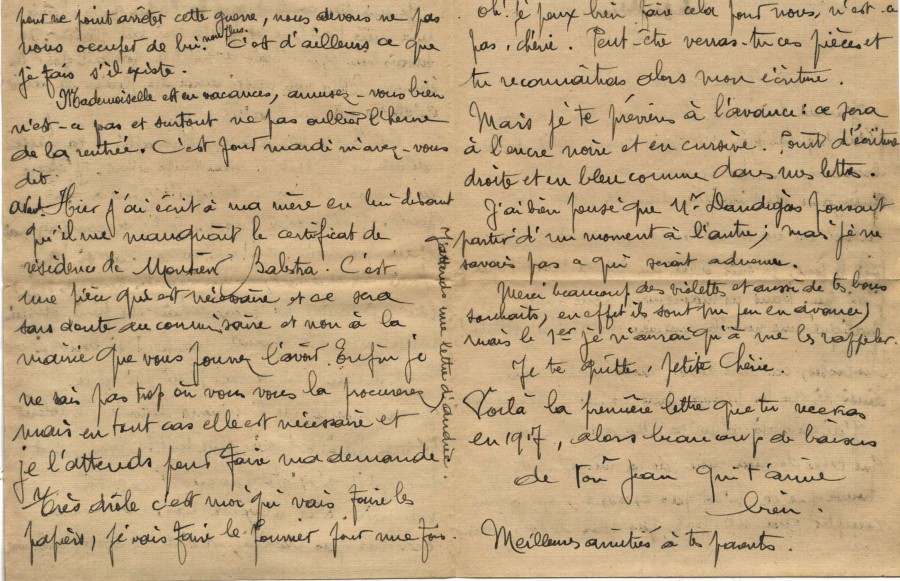 pour ne point arrêter cette guerre, nous devons ne pas
nous occuper de lui non plus. C'est d'ailleurs ce que
je fais s'il existe.
Mademoiselle est en vacances, amusez-vous bien
n'est-ce pas et surtout ne pas oublier l'heure
de la rentrée. C'est pour mardi m'avez-vous
dit.
Avant Hier j'ai écrit à ma mère en lui disant
qu'il me manquait le certificat de
résidence de Monsieur Balestra. C'est
une pièce qui est nécessaire et ce sera
sans doute au commissaire et non à la
mairie que vous pouvez l'avoir. Enfin je
ne sais pas trop où vous vous la procurerez
mais en tout cas elle est nécessaire et
je l'attends pour faire ma demande.
Très drôle c'est moi qui vais faire les
papiers, je vais faire le pour une fois.
J'attends une lettre d'andrée.
oh! je peux bien faire cela pour nous, n'est-ce
pas, chérie. Peut-être verras-tu ces pièces et
tu reconnaîtras alors mon écriture.
Mais je te préviens à l'avance: ce sera
à l'encre noire et en cursive. Point d'écriture
droite et en bleu comme dans mes lettres.
J'ai bien pensé que Mr. pouvait
partir d'un moment à l'autre; mais je ne
savais pas à qui serait advenue.
Merci beaucoup des violettes et aussi de tes bons
souhaits, en effet ils sont un peu en avance,
mais le 1er je n'aurai qu'à me les rappeler.
Je te quitte, petite Chérie.
Voilà la première lettre que tu recevras
en 1917, alors beaucoup de baisers
de Ton Jean qui t'aime
bien.
Meilleures amitiés à tes parents.